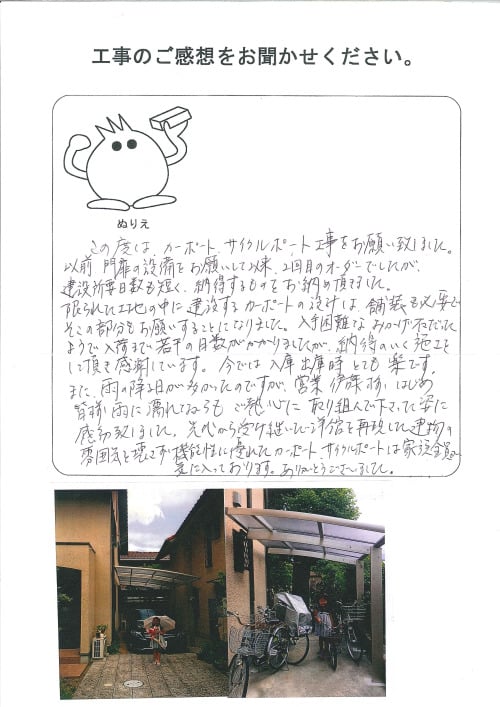 工事のご感想をお聞かせください。
ぬりえ
この度は、カーポート、サイクルポート工事をお願い致しました。
以前 門扉の設備をお願いして以来、2回目のオーダーでしたが、
建設所要日数も短く、納得するものをお納め頂きました。
限られた土地の中に建設するカーポートの設計は、舗装も必要で
そこの部分もお願いすることになりました。入手困難な
ようで入荷まで若干の日数がかかりましたが、納得のいく施工を
して頂き感謝しています。今では入庫出庫時とても楽です。
また、雨の降る日が多かったのですが、営業 様、はじめ
皆様雨に濡れながらも ご熱心に取り組んで下さった姿に
感動致しました。 から受け継いだ洋館を再現した建物の
雰囲気を壊さず機能性に優れたカーポート サイクルポートは家族全員
気に入っております。ありがとうございました。